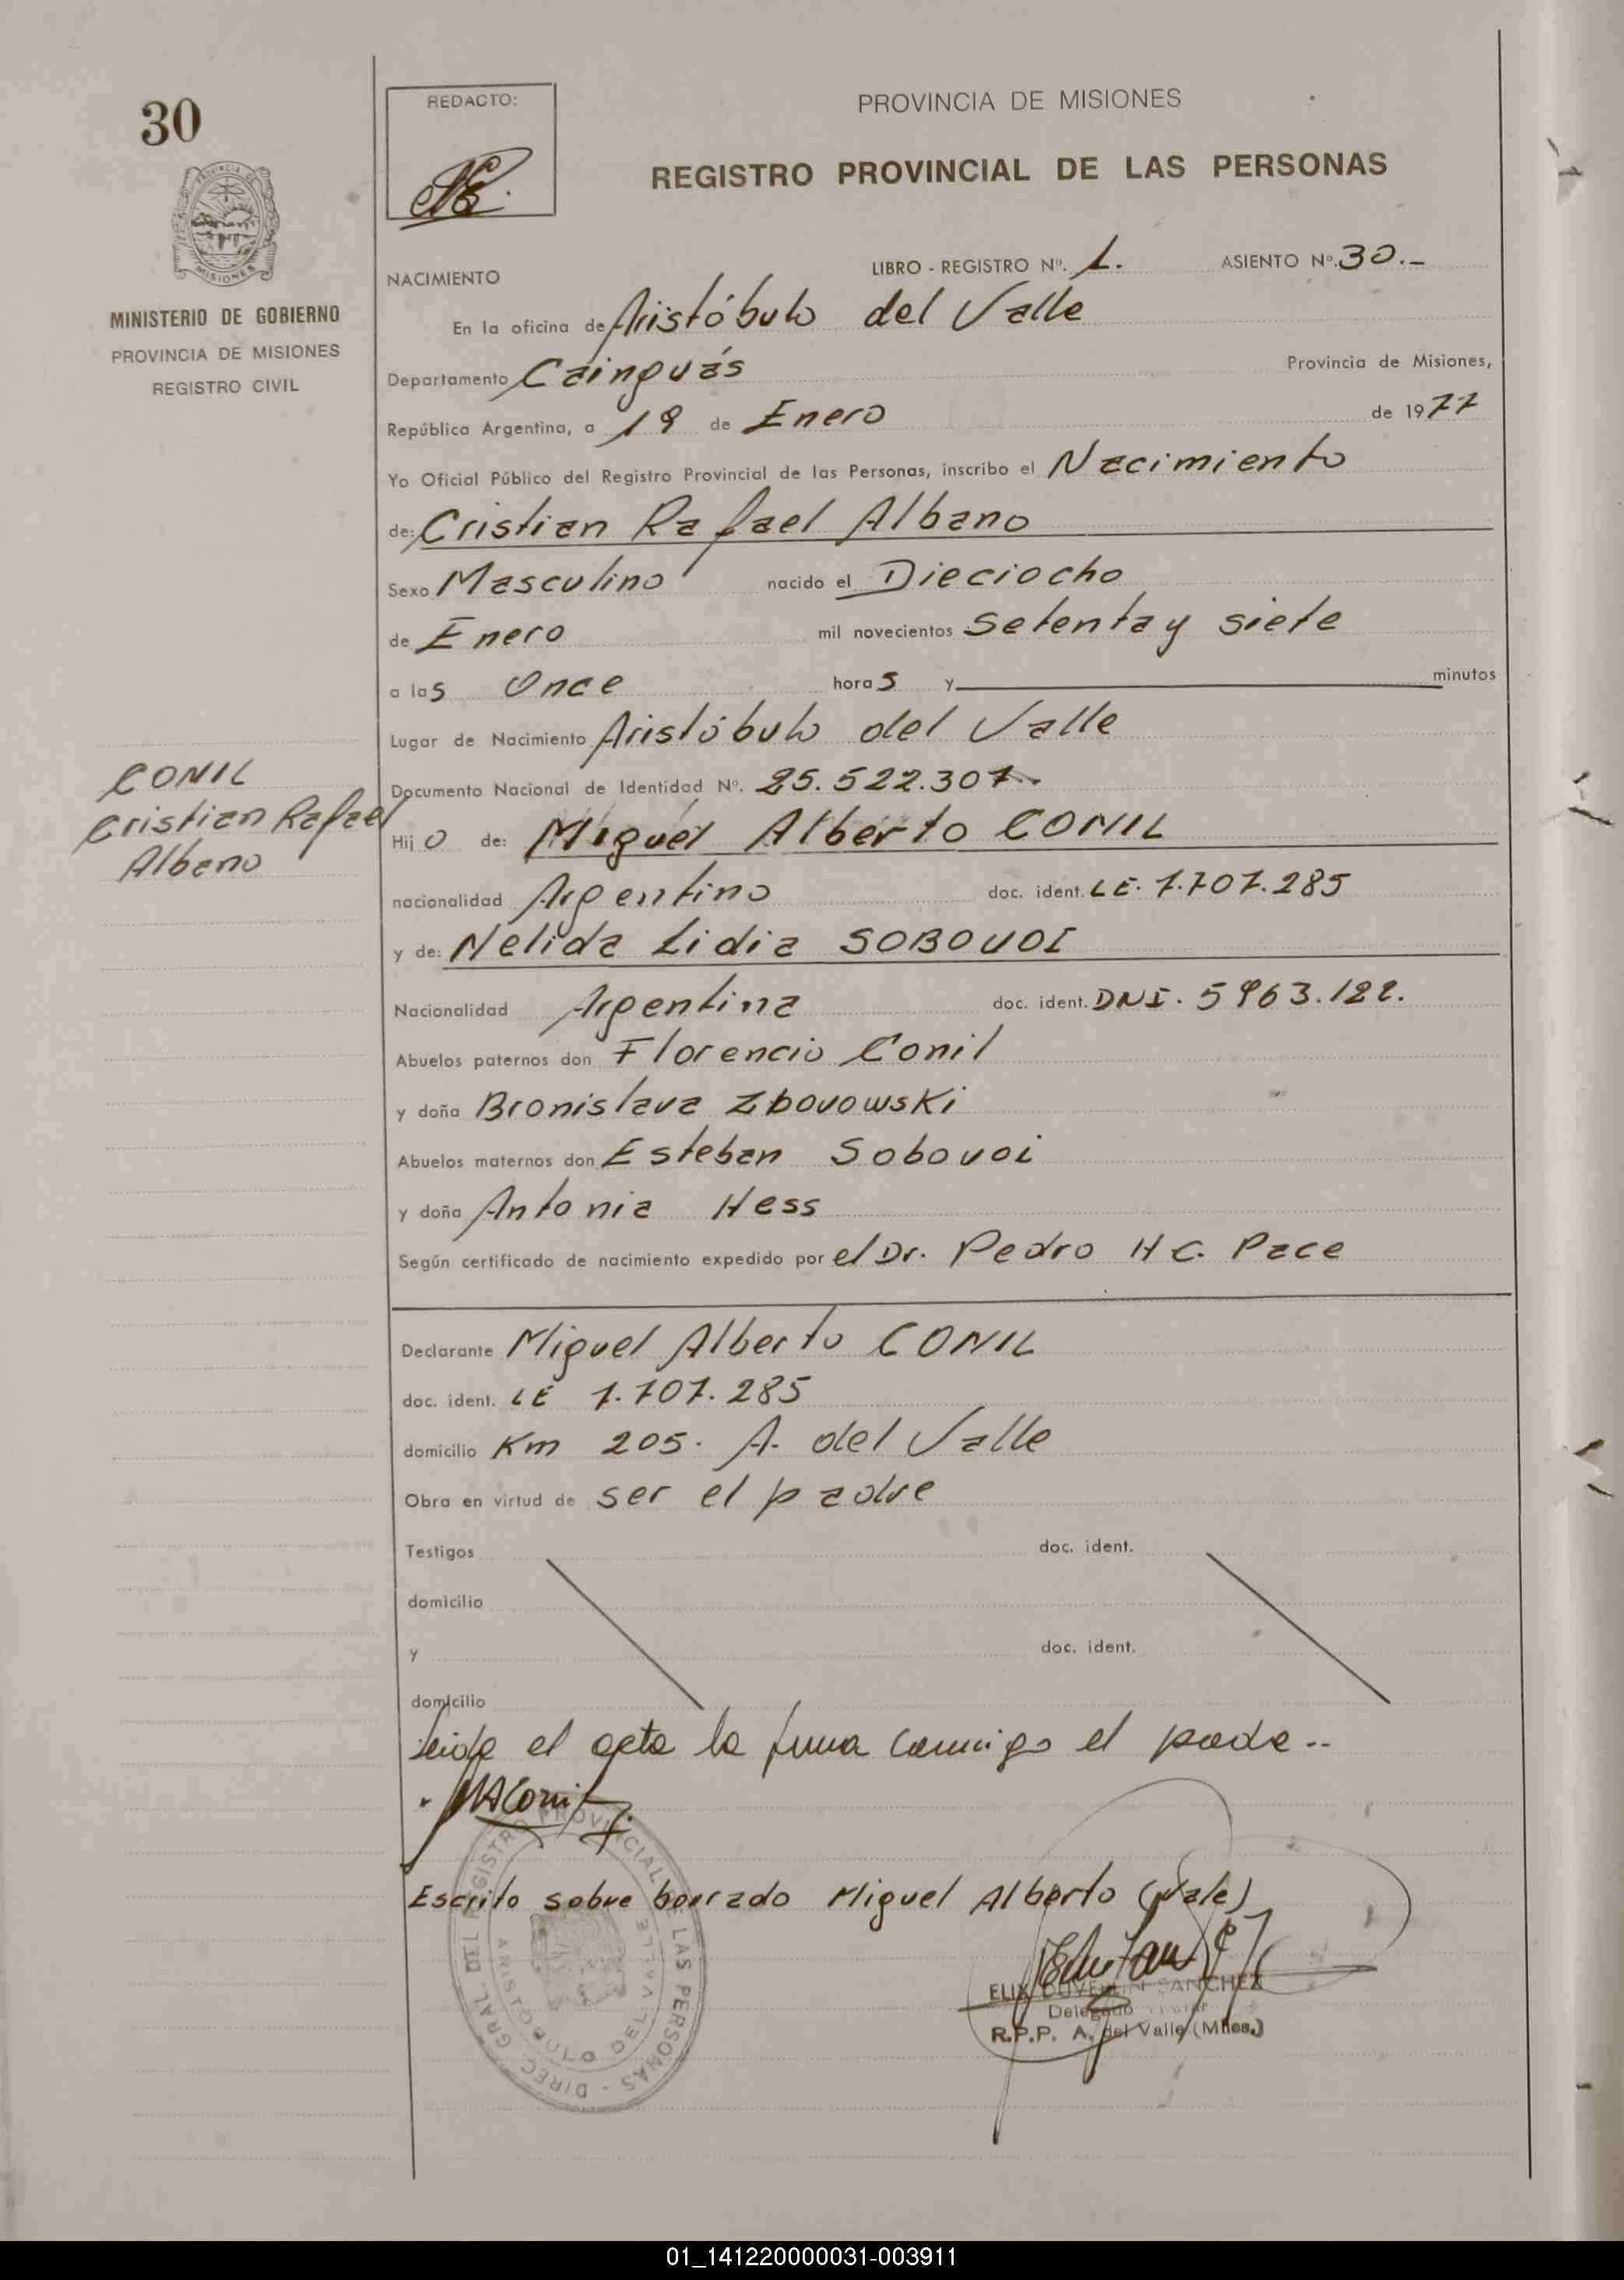 30
REDACTO:
PROVINCIA DE MISIONES
REGISTRO PROVINCIAL DE LAS PERSONAS
MISIONES
MINISTERIO DE GOBIERNO
PROVINCIA DE MISIONES
REGISTRO CIVIL
LIBRO - REGISTRO Nº. 1. ASIENTO Nº. 30.-
NACIMIENTO
En la oficina de Aristóbulo del Valle
Departamento Cainguás Provincia de Misiones,
República Argentina, a 19 de Enero de 1977
Yo Oficial Público del Registro Provincial de las Personas, inscribo el Nacimiento
de: Cristian Rafael Albano
Sexo Masculino nacido el Dieciocho
de Enero mil novecientos Setenta y siete
a las Once horas y minutos
Lugar de Nacimiento Aristóbulo del Valle
Documento Nacional de Identidad Nº. 25.522.307.-
CONIL
Cristian Rafael
Albano
Hijo de: Miguel Alberto CONIL
nacionalidad Argentino doc. ident. LE. 7.707.285
y de: Nelida Lidia SOBOVOI
Nacionalidad Argentina doc. ident. DNI. 5963.122.
Abuelos paternos don Florencio Conil
y doña Bronislava Zbovowski
Abuelos maternos don Esteban Sobovoi
y doña Antonia Hess
Según certificado de nacimiento expedido por el Dr. Pedro H C. Pace
Declarante Miguel Alberto CONIL
doc. ident. LE 7.707.285
domicilio Km 205. A. del Valle
Obra en virtud de ser el padre
Testigos doc. ident.
domicilio
y doc. ident.
domicilio
Leida el acta la firma conmigo el padre..
MAConil
Escrito sobre borrado Miguel Alberto (Vale)
DIREC. GRAL. DEL REGISTRO PROVINCIAL DE LAS PERSONAS
ARISTOBULO DEL VALLE
SANCHEZ
Delegado
R.P.P. A. del Valle (Mnes.)
01_141220000031-003911